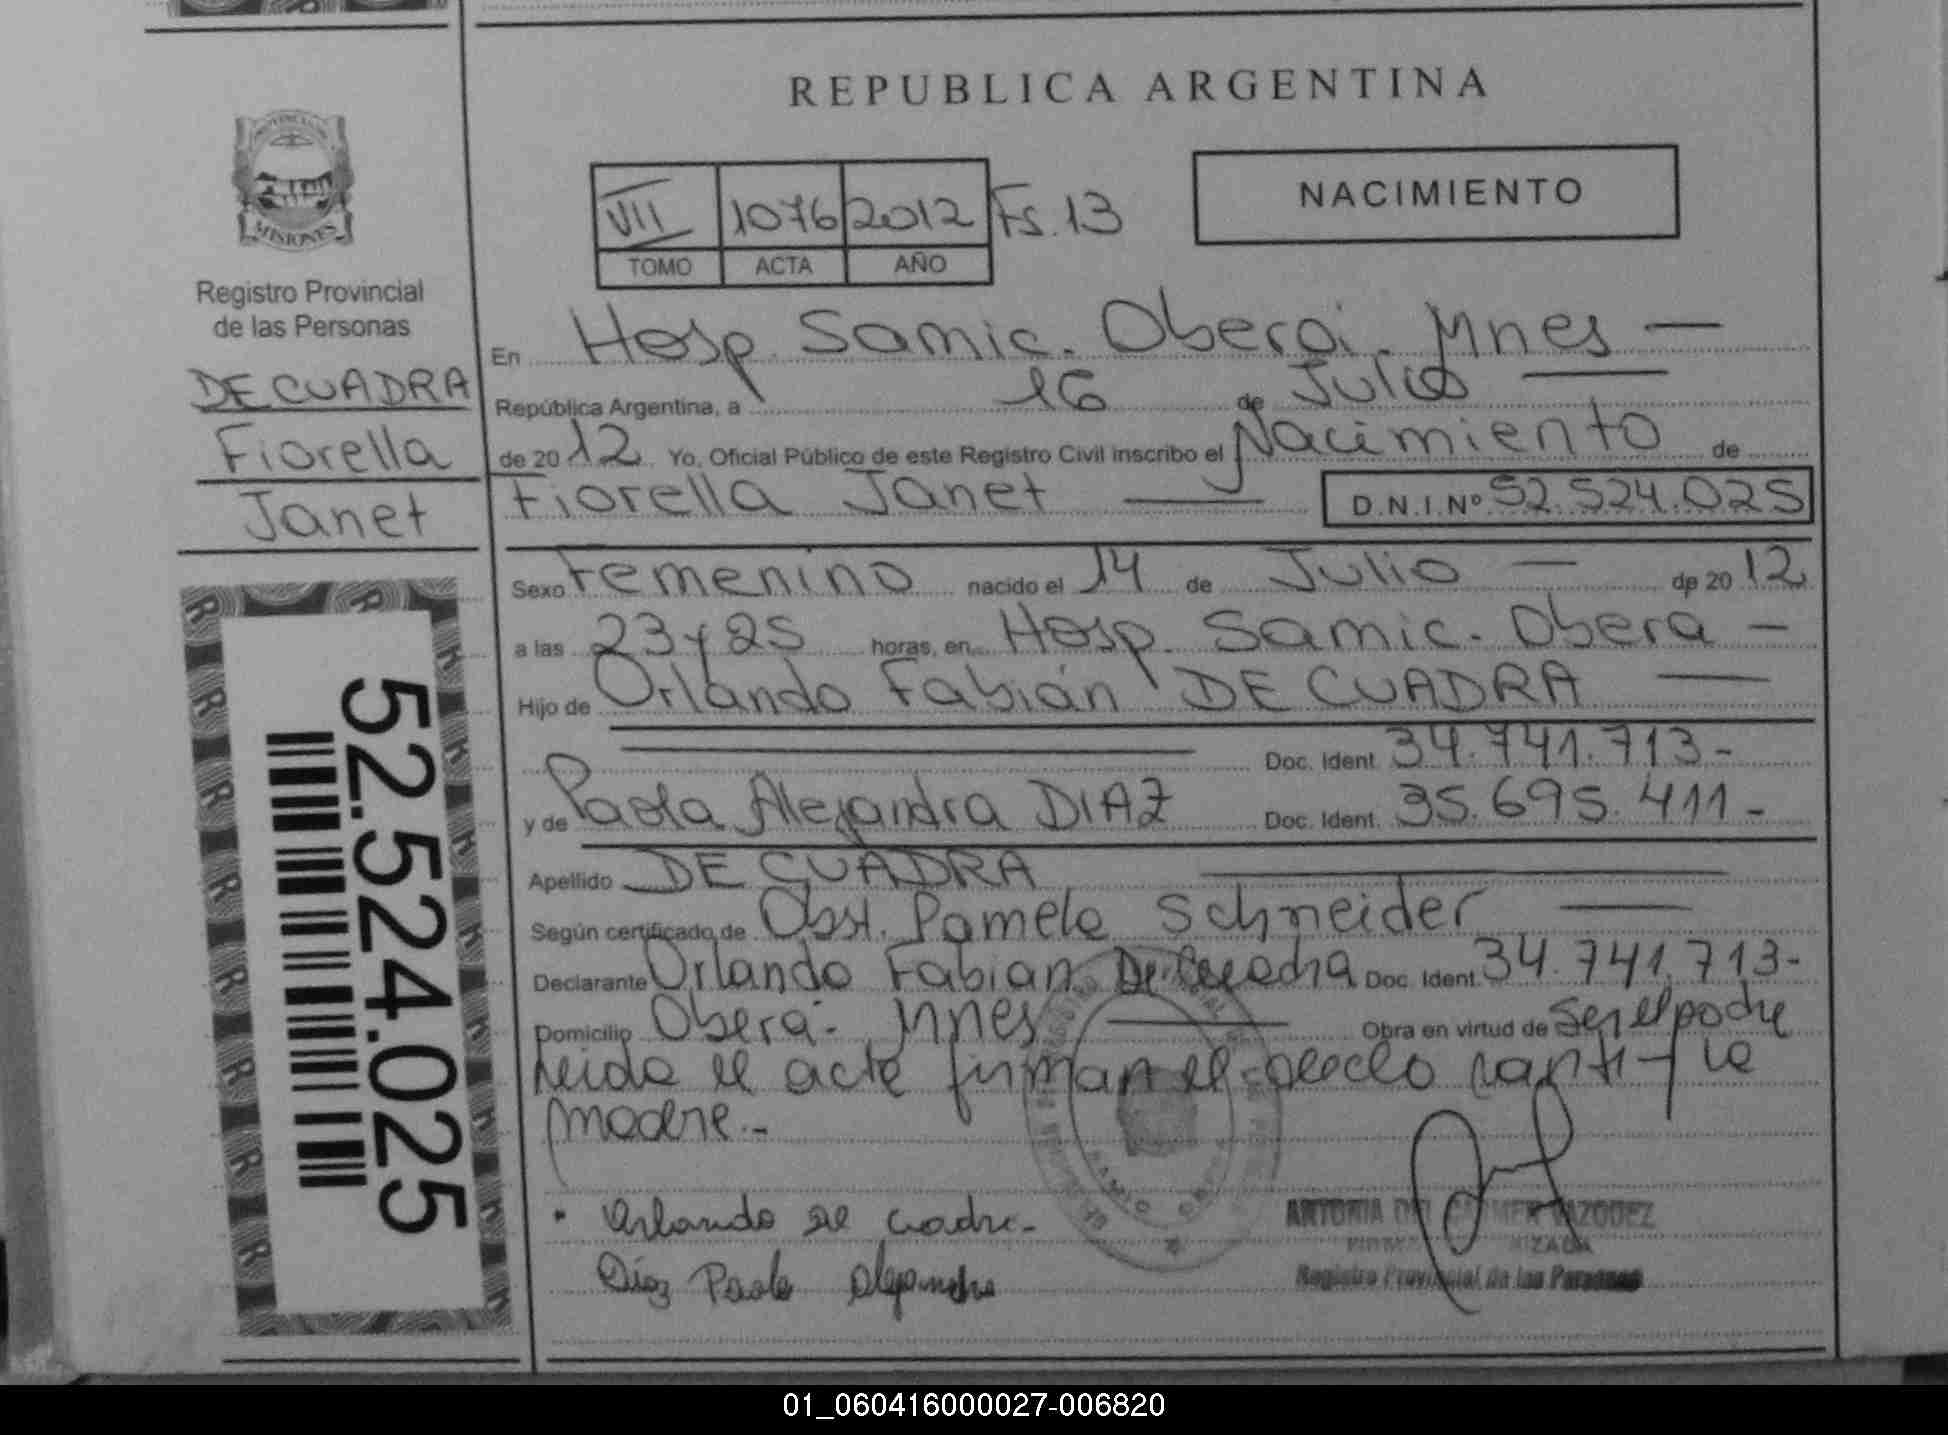 REPUBLICA ARGENTINA
PROVINCIA DE
MISIONES
Registro Provincial
de las Personas
DE CUADRA
Fiorella
Janet
52.524.025
VII 1076 2012 Fs. 13
TOMO ACTA AÑO
NACIMIENTO
En Hosp. Samic. Oberá. Mnes —
República Argentina, a 16 de Julio —
de 2012 Yo, Oficial Público de este Registro Civil inscribo el Nacimiento de
Fiorella Janet — D.N.I.Nº 52.524.025
Sexo Femenino nacido el 14 de Julio — de 2012
a las 23 y 25 horas, en Hosp. Samic. Obera —
Hijo de Orlando Fabián DE CUADRA —
Doc. Ident. 34.741.713-
y de Paola Alejandra DIAZ Doc. Ident. 35.695.411-
Apellido DE CUADRA —
Según certificado de Obst. Pamela Schneider —
Declarante Orlando Fabian De Cuadra Doc. Ident. 34.741.713-
Domicilio Oberá- Mnes — Obra en virtud de Ser el padre
Leida el acta firman el y la
madre.-
Orlando de cuadra-
Díaz Paola Alejandra
ANTONIA DEL CARMEN VAZQUEZ
Registro Provincial de las Personas
01_060416000027-006820